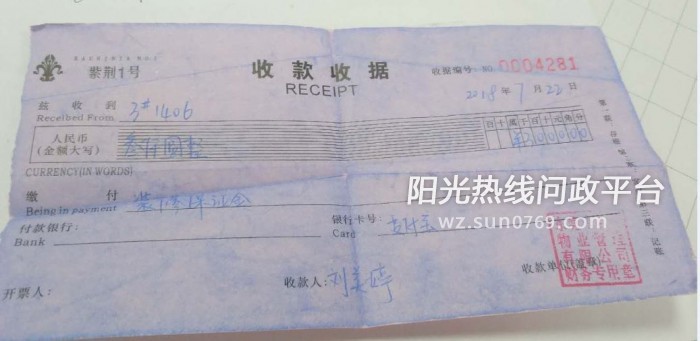 BAUHINIA NO.1
紫荆1号
收款收据
RECEIPT
收据编号: NO 0004281
2018年7月22日
兹收到
Receibed From:
3#1406
人民币
(金额大写)
叁仟圆整
百十万千百十元角分
CURRENCY(IN WORDS)
缴付
Being in payment
装修保证金
付款银行:
Bank
银行卡号
Card
支付宝
阳光热线问政平台
wz.sun0769.com
物业管理
有限公司
财务专用章
收款单位(盖章)
开票人:
收款人: